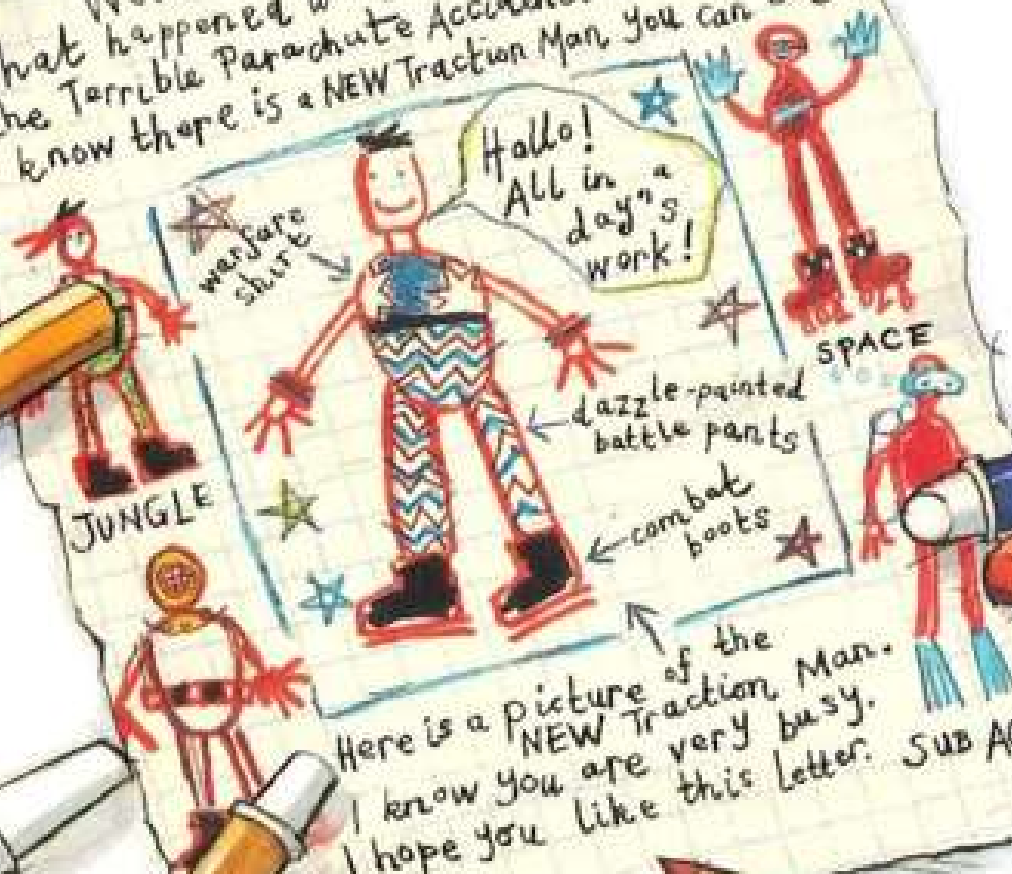 hat happened
the Terrible Parachute
know there is a NEW Traction Man you can
Hallo!
All in
a
day"s
work!
warfare
shirt
SPACE
dazzle-painted
battle pants
JUNGLE
combat
boots
Here is a picture of the
NEW Traction Man.
I know you are very busy.
I hope you like this letter.
SUB A